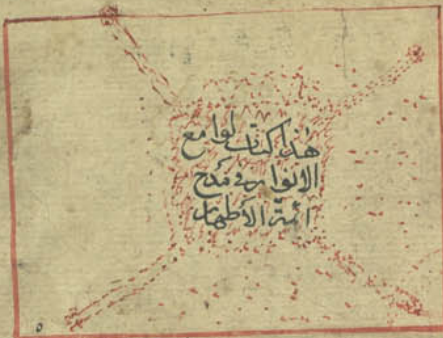 هذا كتاب لوامع
الانوار في مدح
ائمة الأطهار